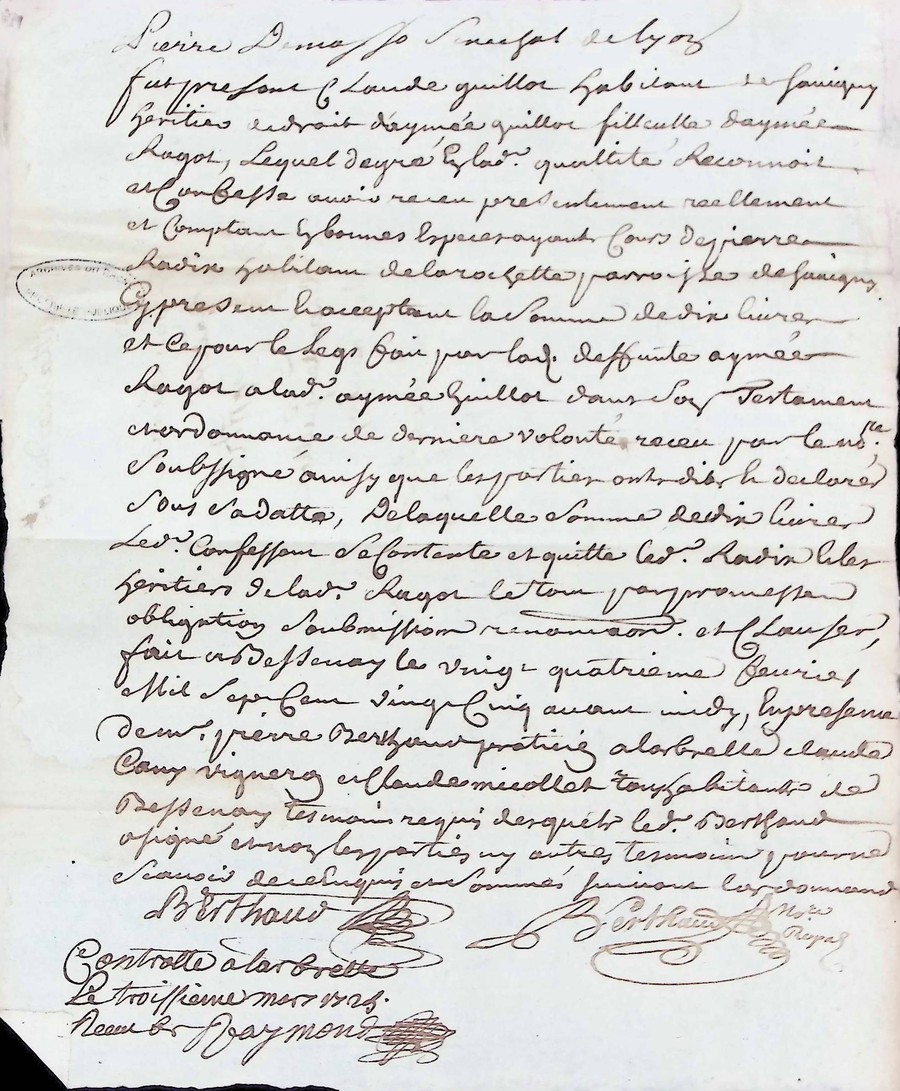 Pierre Demasso Senechal de lyon
fut present Claude guillot habitant de Savigny
héritier de droit d'aymée guillot fille d'aymée
Ragot, Lequel de gré En lad.e quallité Reconnoit
et Confesse avoir receu presentement reellement
et Comptant En bonnes Especes ayants Cours de pierre
Radix habitant de la rochette parroisse de Savigny
Cy present Et acceptant la Somme de dix livres
et Ce pour le Legs fait par lad. deffunte aymée
Ragot a lad.e aymée Guillot dans Son Testament
et ordonnance de derniere volonté receu par le no.re
Soubssigné ainsy que les parties onts dit Et declaré
Sous Sa datte, De laquelle Somme de dix livres
Led.t Confessant Se Contente et quitte led.t Radix Et les
héritiers de lad.e Ragot le tout par promesses
obligation Soubmission renonciaon. et Clauses,
fait a Bessenay le vingt quatrieme fevrier
Mil Sept Cent vingt Cinq avant midy, En presence
de m.e pierre Berthaud praticien a larbrelle claude
Cany vigneron et Claude micollet tous habitants de
Bessenay tesmoins requis desquels led.t Berthaud
a signé et non les parties ny autres tesmoins pour ne
Scavoir de ce Enquis et Sommés Suivant lordonnance
Berthaud
Berthaud No.re Royal
Controllé a larbrelle
Le troissieme mars 1725.
Receu Raymond
ARCHIVES DU
PUBLIQUE